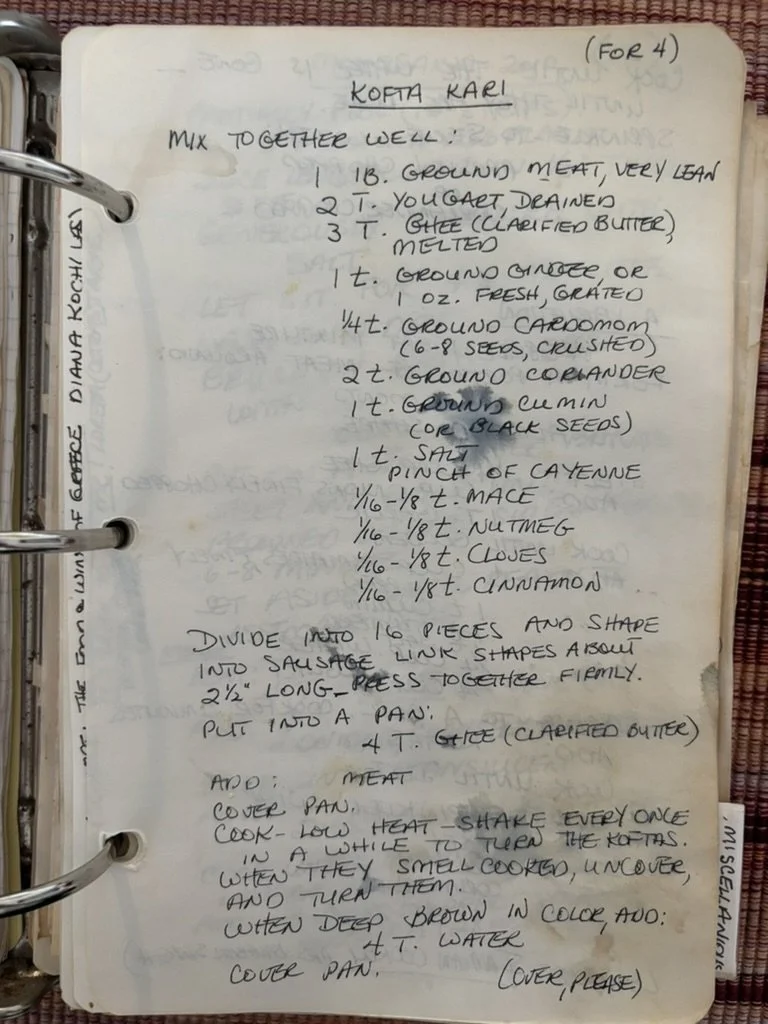 (FOR 4)
KOFTA KARI
MIX TOGETHER WELL:
1 lB. GROUND MEAT, VERY LEAN
2 T. YOUGART, DRAINED
3 T. GHEE (CLARIFIED BUTTER),
MELTED
1 t. GROUND GINGER, OR
1 OZ. FRESH, GRATED
1/4 t. GROUND CARDOMOM
(6-8 SEEDS, CRUSHED)
2 t. GROUND CORIANDER
1 t. GROUND CUMIN
(OR BLACK SEEDS)
1 t. SALT
PINCH OF CAYENNE
1/16-1/8 t. MACE
1/16-1/8 t. NUTMEG
1/16-1/8 t. CLOVES
1/16-1/8 t. CINNAMON
DIVIDE INTO 16 PIECES AND SHAPE
INTO SAUSAGE LINK SHAPES ABOUT
2 1/2" LONG_PRESS TOGETHER FIRMLY.
PUT INTO A PAN:
4 T. GHEE (CLARIFIED BUTTER)
ADD: MEAT
COVER PAN.
COOK-LOW HEAT-SHAKE EVERY ONCE
IN A WHILE TO TURN THE KOFTAS.
WHEN THEY SMELL COOKED, UNCOVER,
AND TURN THEM.
WHEN DEEP BROWN IN COLOR, ADD:
4 T. WATER
COVER PAN. (OVER, PLEASE)
THE OF DIANA